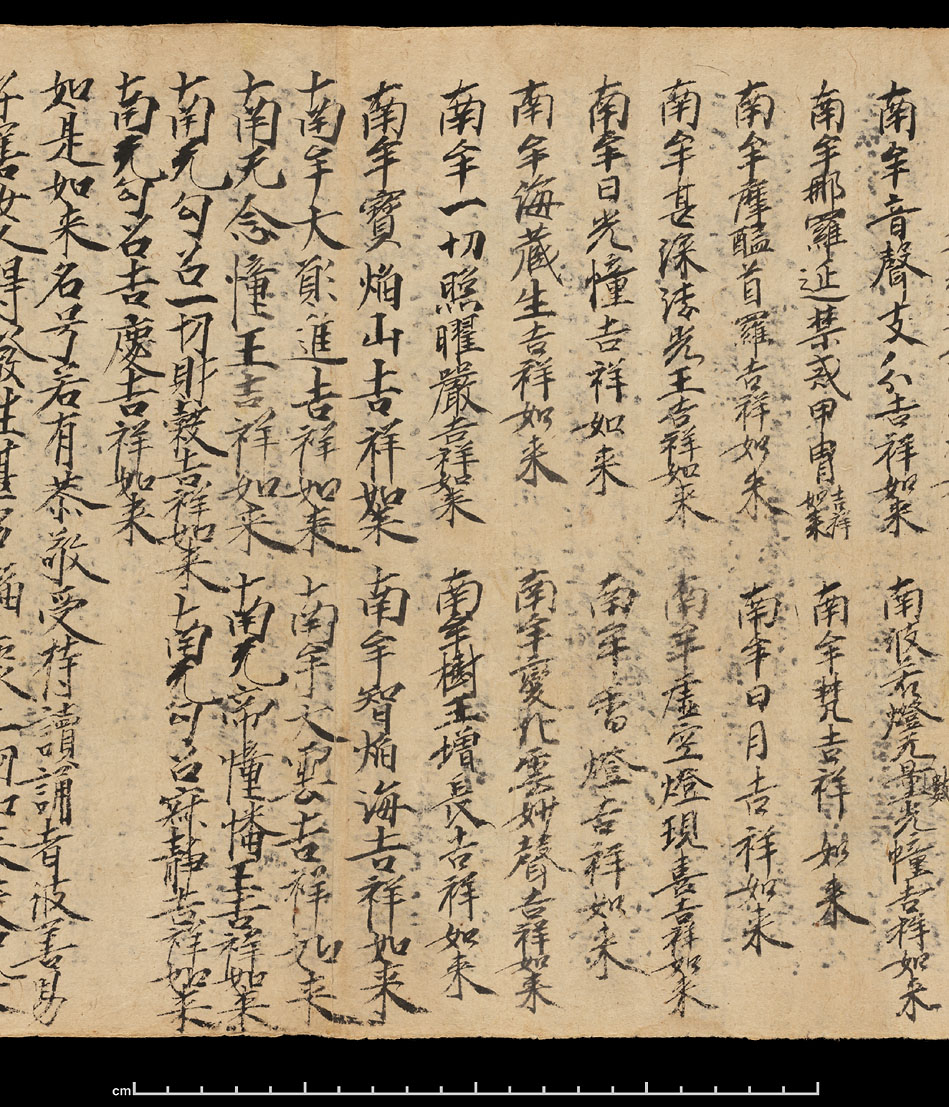 南牟音聲支分吉祥如来 南牟般若燈无量光幢吉祥如来
南牟那羅延禁戒甲胄吉祥如来 南牟梵吉祥如来
南牟摩醯首羅吉祥如来 南牟日月吉祥如来
南牟甚深法光王吉祥如来 南牟虚空燈現喜吉祥如来
南牟日光幢吉祥如来 南牟香燈吉祥如来
南牟海藏生吉祥如来 南牟變化雲妙聲吉祥如来
南牟一切照曜嚴吉祥如来 南牟樹王增長吉祥如来
南牟寶焔山吉祥如来 南牟智焔海吉祥如来
南牟大願進吉祥如来 南牟大雲吉祥如来
南无念幢王吉祥如来 南无帝幢幡王吉祥如来
南无勾召一切財穀吉祥如来 南无勾召寂静吉祥如来
南无勾召吉慶吉祥如来
如是如来名号若有恭敬受持讀誦者彼善男